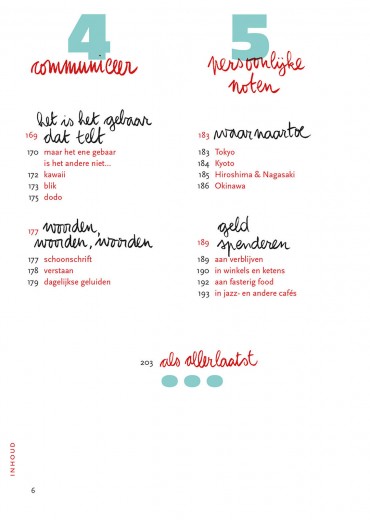 4
communiceer
het is het gebaar
169 dat telt
170 maar het ene gebaar
is het andere niet...
172 kawaii
173 blik
175 dodo
177 woorden,
woorden, woorden
177 schoonschrift
178 verstaan
179 dagelijkse geluiden
5
persoonlijke
noten
183 waarnaartoe
183 Tokyo
184 Kyoto
185 Hiroshima & Nagasaki
186 Okinawa
geld
189 spenderen
189 aan verblijven
190 in winkels en ketens
192 aan fasterig food
193 in jazz- en andere cafés
203 als allerlaatst
INHOUD
6